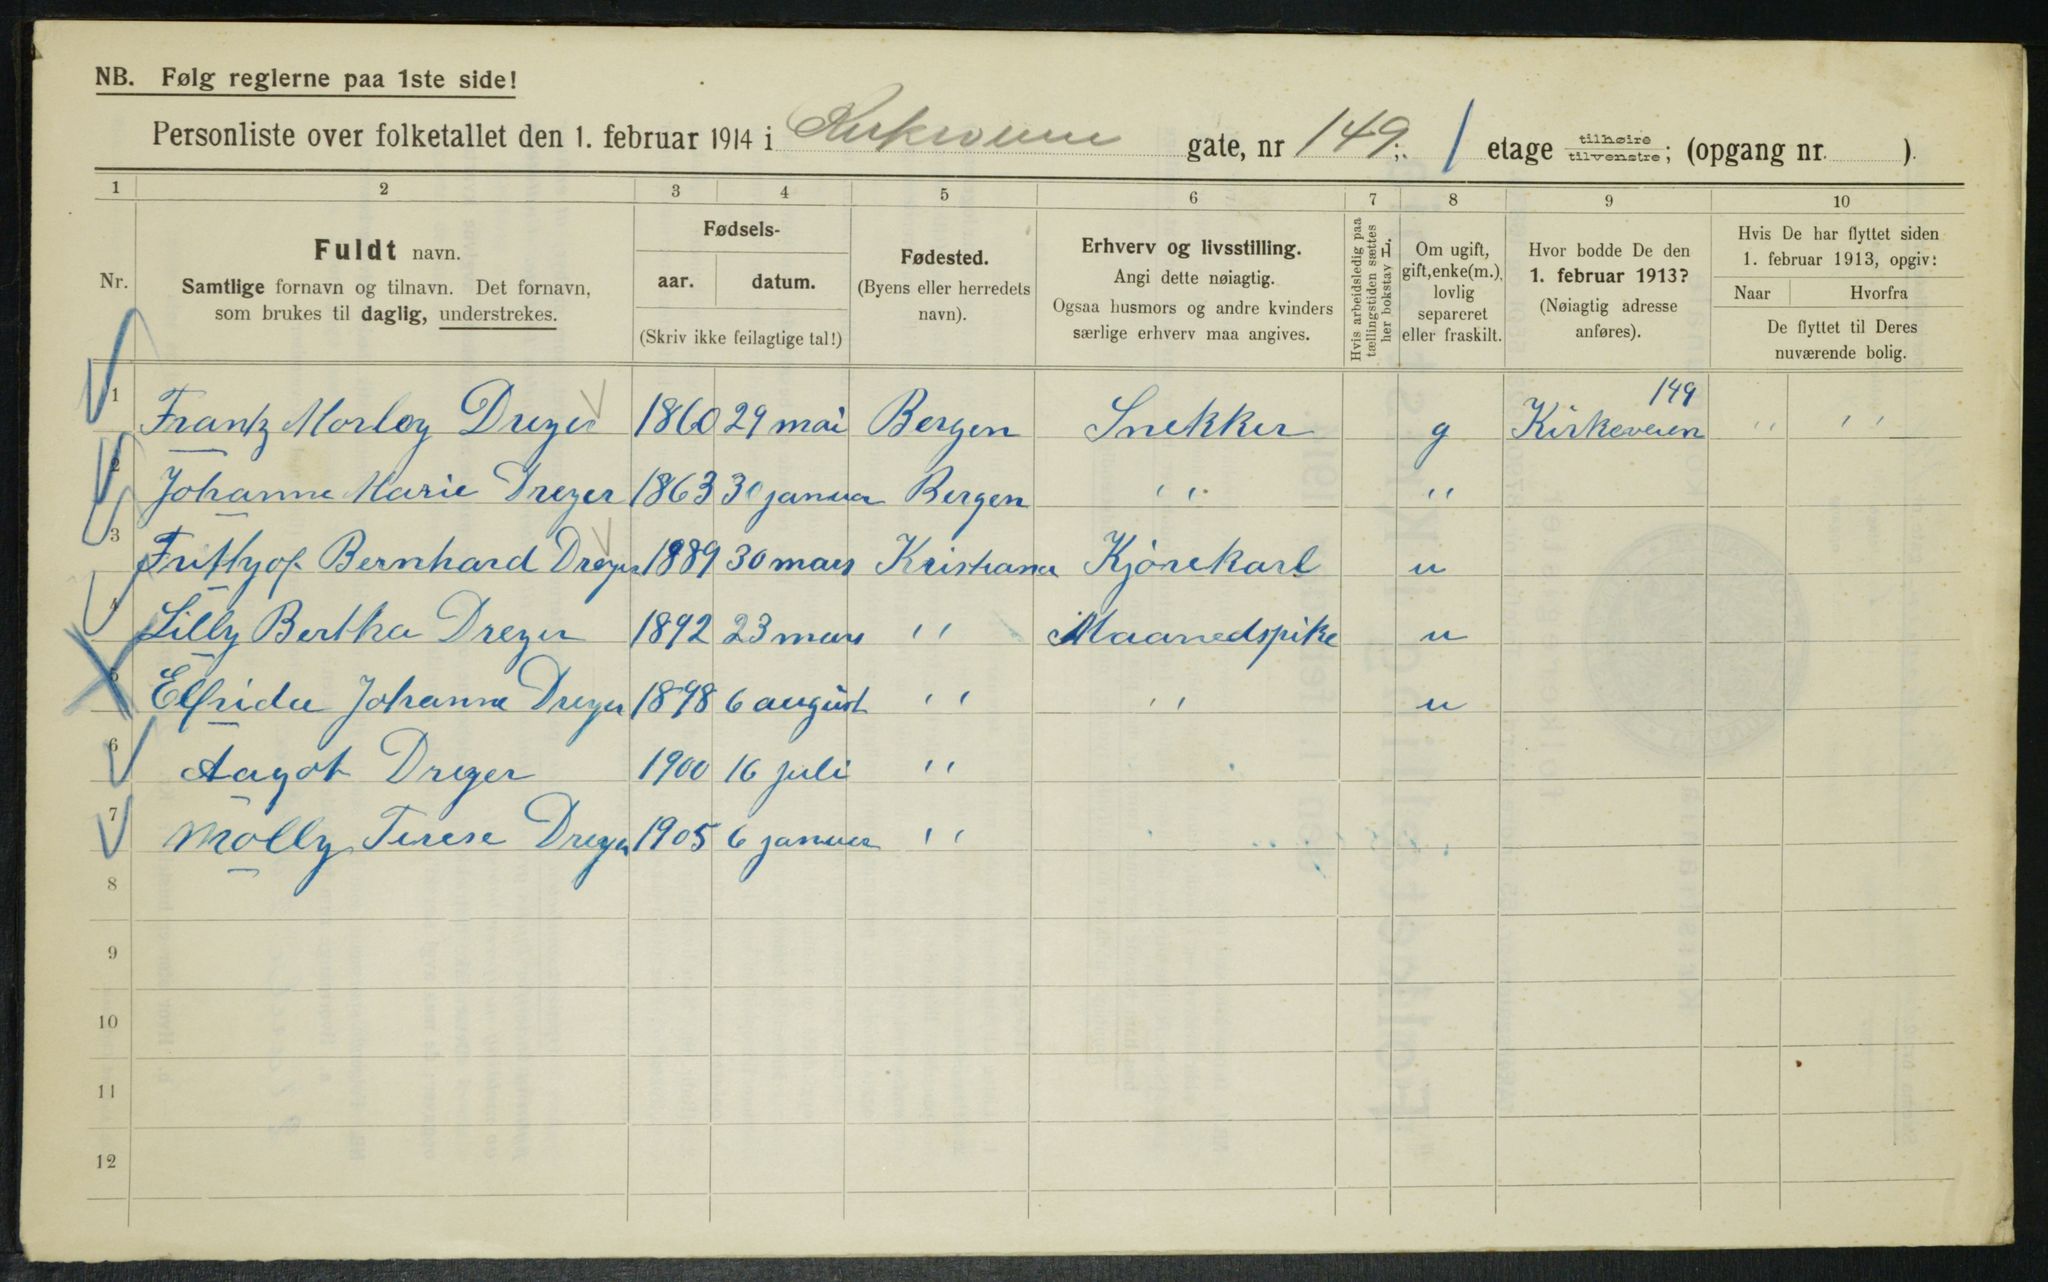 NB. Følg reglerne paa 1ste side!
Personliste over folketallet den 1. februar 1914 i Kirkeveien gate, nr 149; 1 etage tilhøire tilvenstre; (opgang nr. ).
1 2 3 4 5 6 7 8 9 10
Nr.
Fuldt navn.
Samtlige fornavn og tilnavn. Det fornavn,
som brukes til daglig, understrekes.
Fødsels-
aar. datum.
(Skriv ikke feilagtige tal!)
Fødested.
(Byens eller herredets
navn).
Erhverv og livsstilling.
Angi dette nøiagtig.
Ogsaa husmors og andre kvinders
særlige erhverv maa angives.
Hvis arbeidsledig paa
tællingstiden sættes
her bokstav L.
Om ugift,
gift, enke(m.),
lovlig
separeret
eller fraskilt.
Hvor bodde De den
1. februar 1913?
(Nøiagtig adresse
anføres).
Hvis De har flyttet siden
1. februar 1913, opgiv:
Naar Hvorfra
De flyttet til Deres
nuværende bolig.
1 Frantz Morley Dreyer 1860 29 mai Bergen Snekker g Kirkeveien 149 " "
2 Johanne Marie Dreyer 1863 30 januar Bergen " "
3 Frithjof Bernhard Dreyer 1889 30 mars Kristiania Kjørekarl u
4 Lilly Bertha Dreyer 1892 23 mars " Maanedspike u
5 Elfrida Johanne Dreyer 1898 6 august " " u
6 Aagot Dreyer 1900 16 juli "
7 Molly Terese Dreyer 1905 6 januar "
8
9
10
11
12